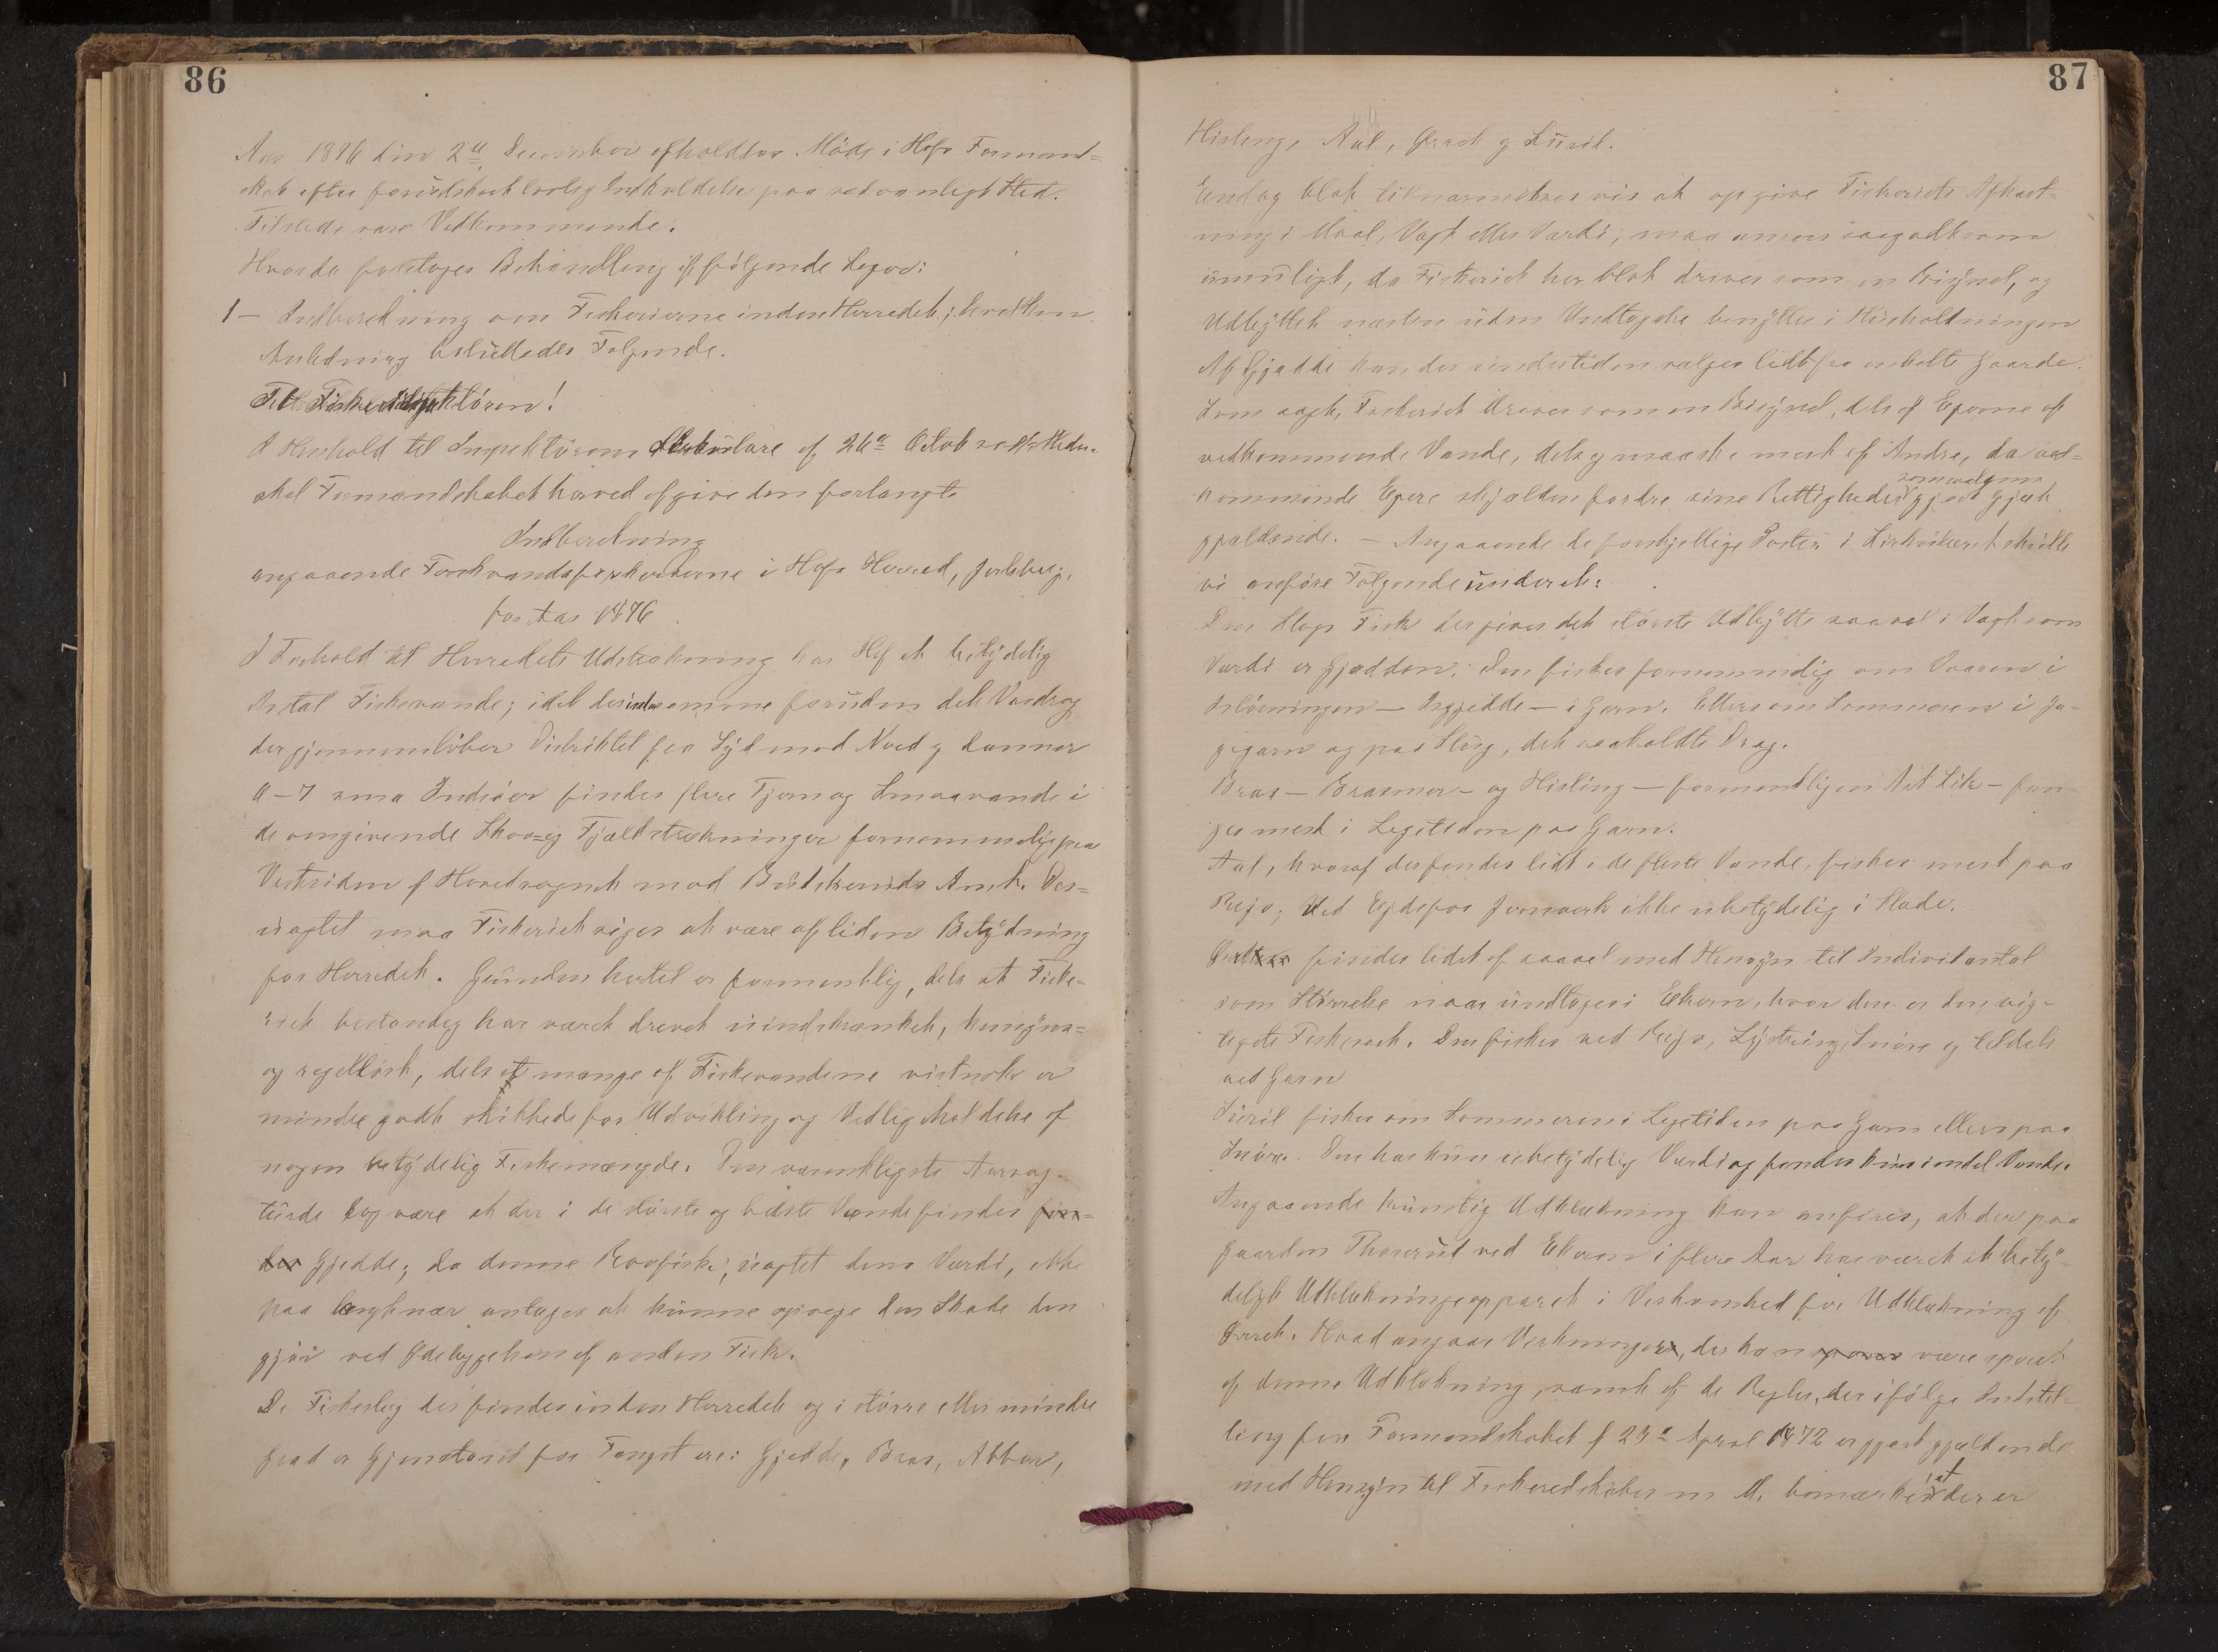 86
Aar 1876 den 2den December afholdtes Møde i Hofs Formand=
skab efter forudskeet lovlig Indkaldelse paa sædvanligt Sted.
Tilstede vare Vedkommende.
Hvorda foretoges Behandling af følgende Sager:
1 — Indberetning om Fiskerierne inden Herredet; i hvilken
Anledning besluttedes Følgende.
Til Fiskeriinspektøren!
I Henhold til Inspektørens Cirkulære af 26de Octob
skal Formandskabet herved afgive den forlangte
Indberetning
angaaende Ferskvandsfiskerierne i Hofs Herred, Jarlsberg,
for Aar 1876
I Forhold til Herredets Udstrækning har Hof et betydelig
Antal Fiskevande; idet der indensamme foruden det Vasdrag
der gjennemløber Distriktet fra Syd mod Nord og danner
6–7 smaa Indsøer findes flere Tjern og Smaavande i
de omgivende Skov= og Fjeldstrækninger fornemmelig paa
Vestsiden af Hovedsognet mod Buskeruds Amt. Des=
uagtet maa Fiskeriet siges at være af liden Betydning
for Herredet. Grunden hertil er formentlig, dels at Fiske=
riet bestandig har været drevet uindskrænket, hensyns=
og regelløst, dels at mange af Fiskevandene vistnok er
mindre godt skikkede for Udvikling og Vedligeholdelse af
nogen betydelig Fiskemængde. Den væsentligste Aarsag
turde dog være at der i de største og bedste Vande findes fin=
des Gjedde; da denne Rovfisk, uagtet dens Værdi, ikke
paa langt nær antages at kunne opveje den Skade den
gjør ved Ødelæggelsen af anden Fisk.
De Fiskeslag der findes inden Herredet og i større eller mindre
Grad er Gjenstand for Fangst ere: Gjedde, Bras, Abbor,
87
Hisling, Aal, Ørret og Kusil.
Endog blot tilnærmelsesvis at opgive Fiskeriets Afkast=
ning i Maal, Vægt eller Værdi, maa ansees saagodtsom
umuligt, da Fiskeriet her blot drives som en Bisyssel, og
Udbyttet næsten uden Undtagelse benyttes i Husholdningen
Af Gjedde kan der undertiden sælges lidt fra enkelte Gaarde.
Som sagt, Fiskeriet drives som en Bisyssel, dels af Ejerne af
vedkommende Vande, dels og maaske mest af Andre, da ved=
kommende Ejere skjælden fordre sine Rettigheder gjort
gjældende. – Angaaende de forskjellige Poster i Cirkulæret skulle
vi anføre Følgende underet:
Den Slags Fisk der giver det største Udbytte saavel i Vægt som
Værdi er Gjedden; den fiskes fornemmelig om Vaaren i
Isløsningen — Isgjedde — i Garn. Ellers om Sommeren i Ja=
gegarn og paa Slug, det saakaldte Drag.
Bras — Brasmer — og Hisling — formentligen Art Sik – fan
ges mest i Legetiden paa Garn.
Aal, hvoraf der findes lidt i de fleste Vande, fiskes mest paa
Rejv; Ved Ejdsfos Jernværk ikke ubetydelig i Klade.
Ørret findes lidet af saavel med Hensyn til Individantal
som Størrelse naar undtages i Ekern, hvor den er den vig=
tigste Fiskesort. Den fiskes ved Rejv, Lystring, Snøre og tildels
ved Garn
Kusil fiskes om Sommeren i Legetiden paa Garn ellers paa
Snøre. Den har kun ubetydelig Værdi og findes kun i endel Vande.
Angaaende kunstig Udklækning kan anføres, at der paa
Gaarden Thorerud ved Ekeren i flere Aar har været et bety=
deligt Udklækningsapparat i Virksomhed for Udklækning af
Ørret. Hvad angaar Virkningen, der kan spores være sporet
af denne Udklækning, samt af de Regler, der ifølge Indstil=
ling fra Formandskabet af 23de April 1872 er gjort gjældende
med Hensyn til Fiskeredskaber m. M. bemærkes at der er